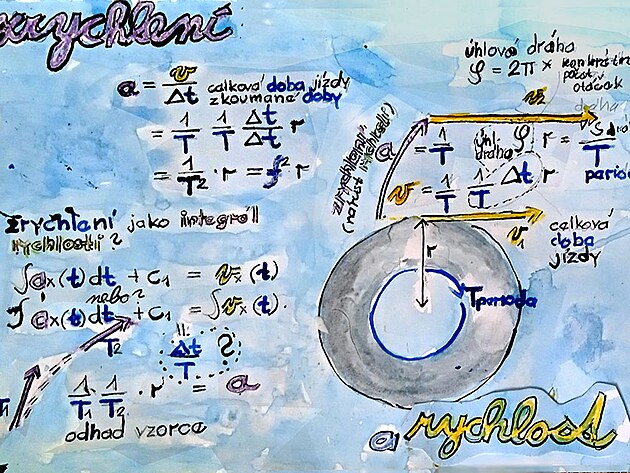 zrychlení
a = v / Δt celková doba jízdy
zkoumané doby
= 1/T 1/T Δt/Δt r
= 1/T² · r = f² r
zrychlení jako integrál
rychlosti?
∫ax(t)dt + C1 = vx(t)
nebo?
∫ax(t)dt + C1 = ∫vx(t).
T2
Δt/T ?
T1
1/T1 1/T2 · r = a
odhad vzorce
úhlová dráha
φ = 2π ×
otáček
v2
dráha
a
zrychlení
(nárůst rychlosti)
= 1/T úhl. dráha φ r =
T
v = 1/T 1/T Δt r
v1
celková
doba
jízdy
r
T perioda
a rychlost